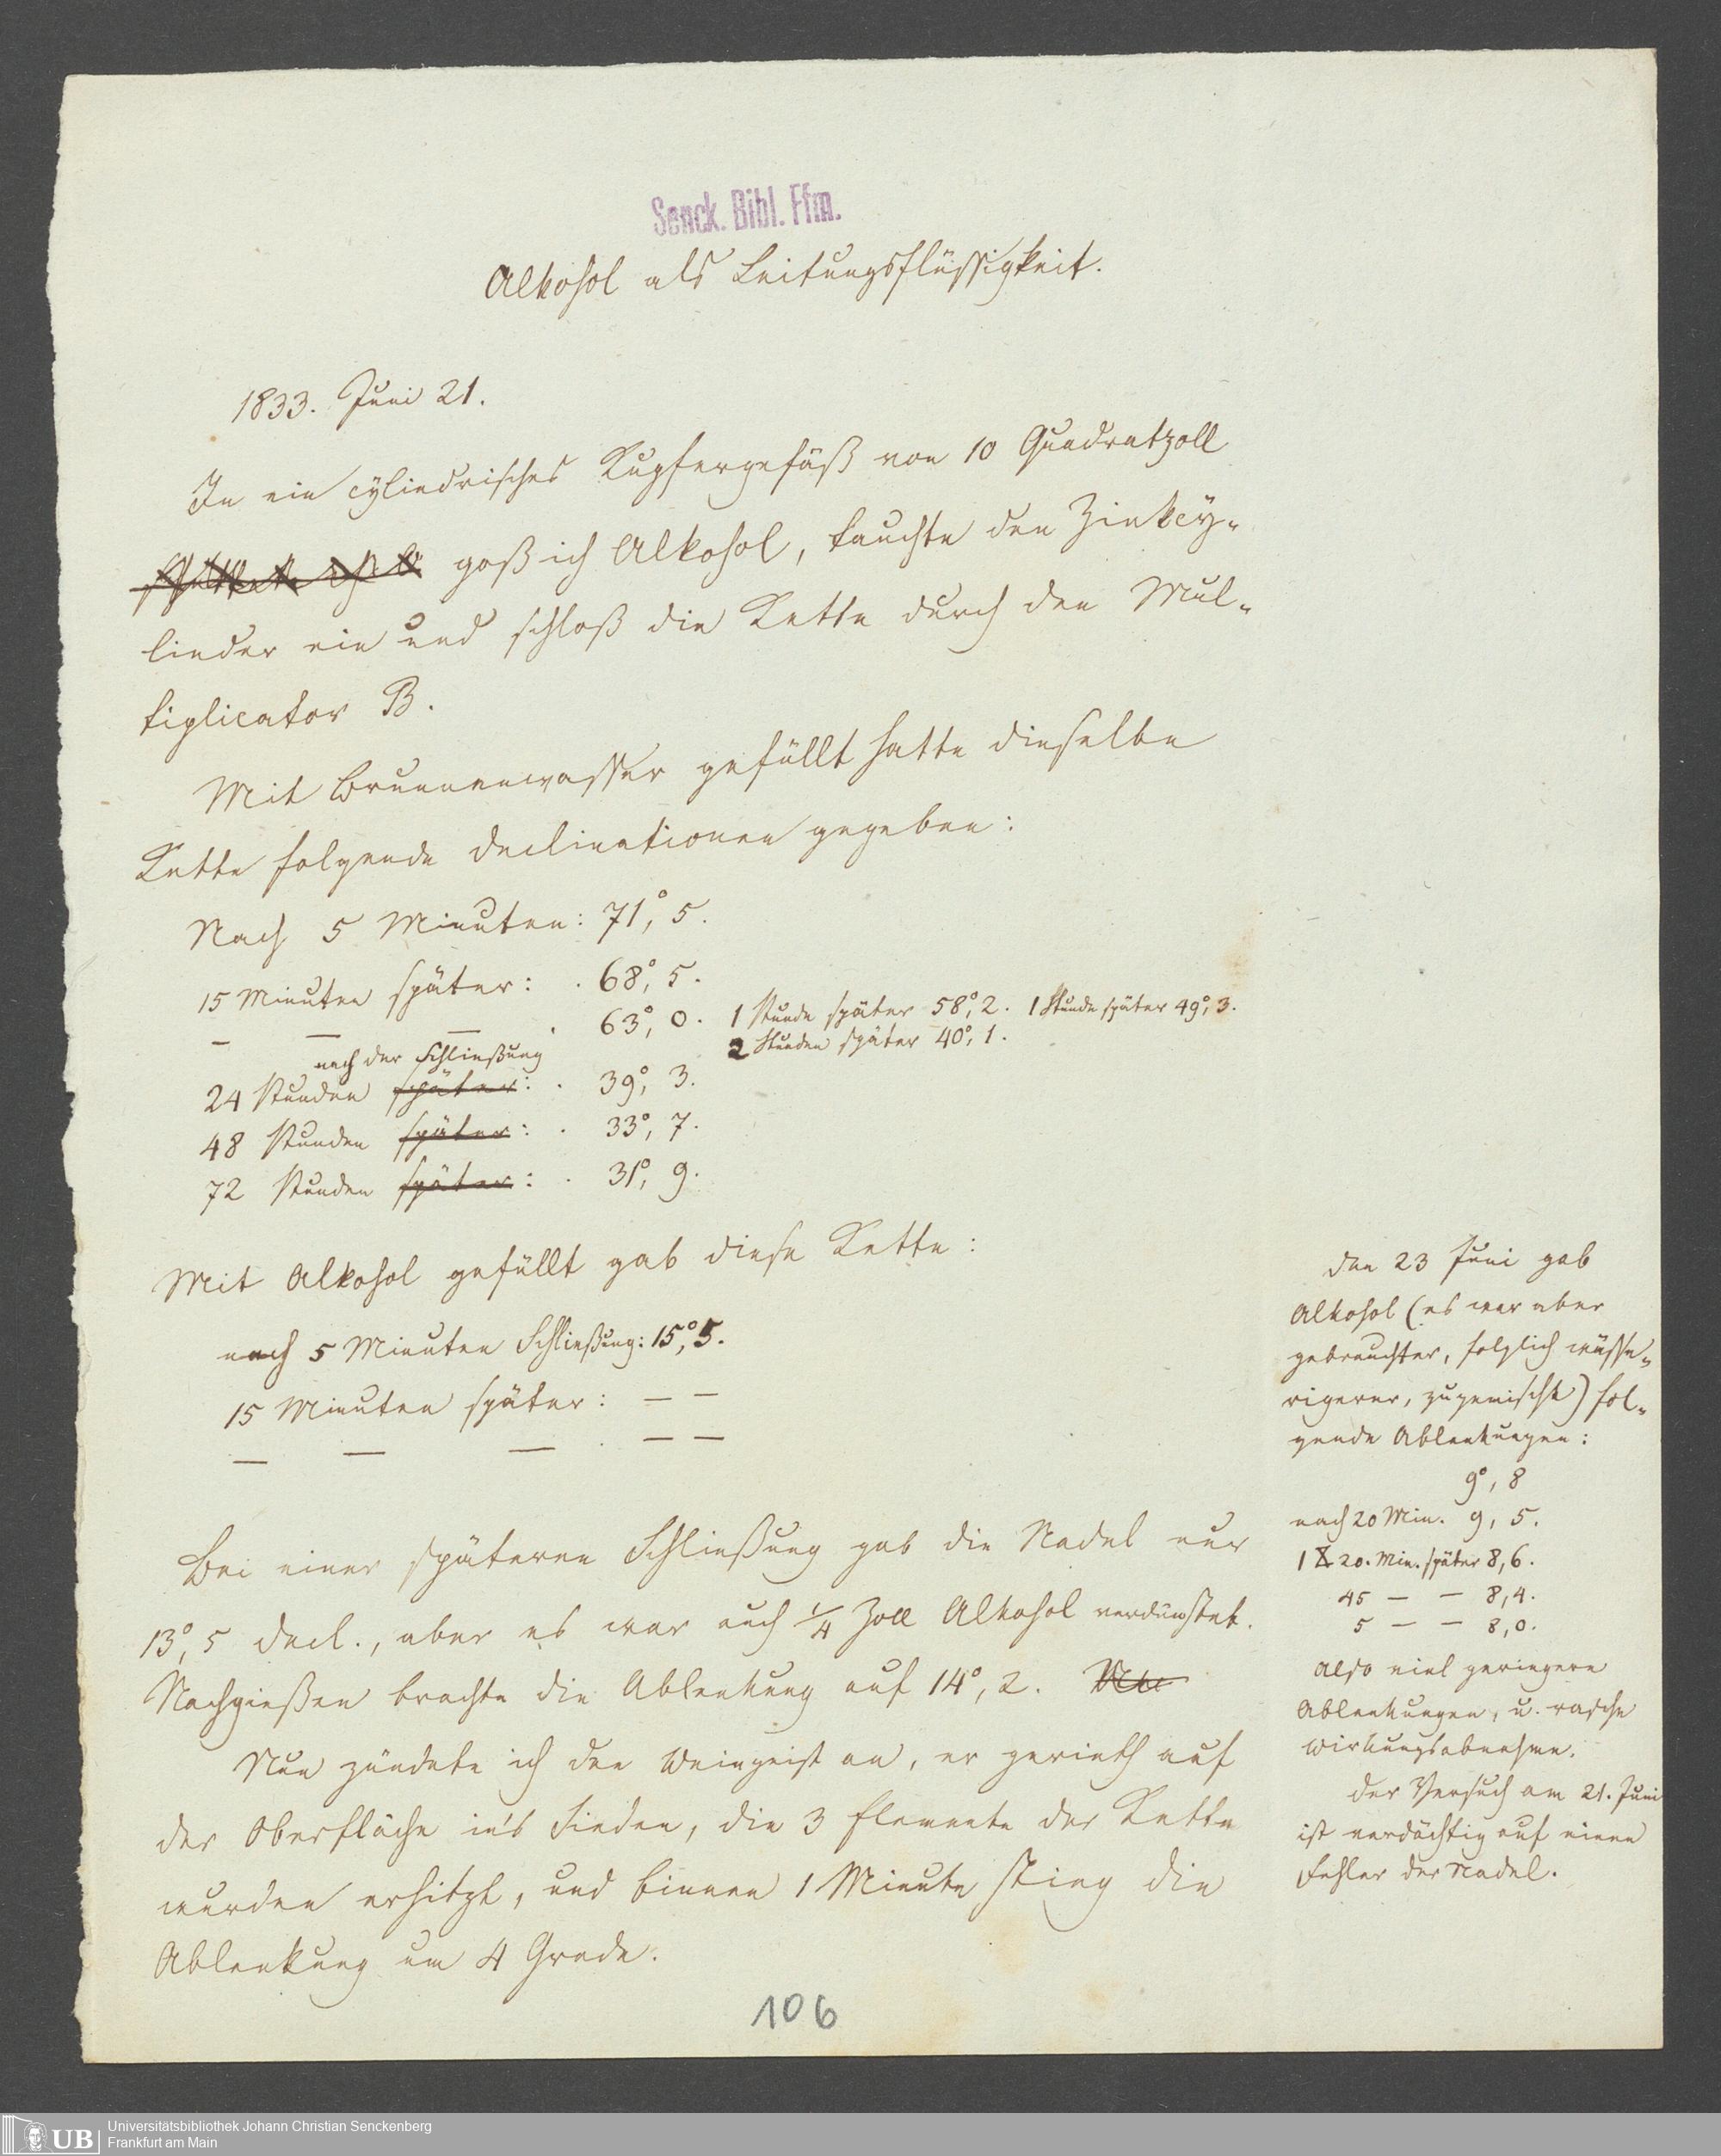 Senck. Bibl. Ffm.
Alkohol als Leitungsflüssigkeit.
1833. Juni 21.
In ein cylindrisches Kupfergefäß von 10 Quadratzoll
goß ich Alkohol, tauchte den Zinkcy-
linder ein und schloß die Kette durch den Mul-
tiplicator B.
Mit Brunnenwasser gefüllt hatte dieselbe
Kette folgende Declinationen gegeben:
Nach 5 Minuten: 71°, 5.
15 Minuten später: . 68°, 5.
— — — . 63°, 0. 1 Stunde später 58°, 2. 1 Stunde später 49°, 3.
2 Stunden später 40°, 1.
nach der Schließung
24 Stunden später: . 39°, 3.
48 Stunden später: . 33°, 7.
72 Stunden später: . 31°, 9.
Mit Alkohol gefüllt gab diese Kette:
nach 5 Minuten Schließung: 15°, 5.
15 Minuten später: — —
— — — . — —
Bei einer späteren Schließung gab die Nadel nur
13°, 5 Decl., aber es war auch 1/4 Zoll Alkohol verdünstet.
Nachgießen brachte die Ablenkung auf 14°, 2.
Nun zündete ich den Weingeist an, er gerieth auf
der Oberfläche in's Sieden, die 3 Elemente der Kette
wurden erhitzt, und binnen 1 Minute stieg die
Ablenkung um 4 Grade.
den 23 Juni gab
Alkohol (es war aber
gebrauchter, folglich wässe-
rigerer, zugemischt) fol-
gende Ablenkungen:
9°, 8
nach 20 Min. 9, 5.
1 St. 20. Min. später 8,6.
45 — — 8,4.
5 — — 8,0.
Also viel geringere
Ablenkungen, u. rasche
Wirkungsabnahme.
der Versuch am 21. Juni
ist verdächtig auf einen
Fehler der Nadel.
106
UB
Universitätsbibliothek Johann Christian Senckenberg
Frankfurt am Main